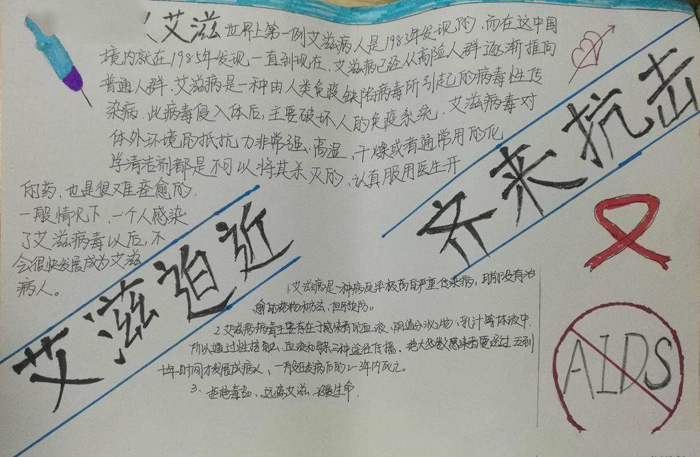 艾滋 世界上第一例艾滋病人是1983年发现的,而在这中国
境内就在1985年发现一直到现在,艾滋病已经从高险人群逐渐推向
普通人群,艾滋病是一种由人类免疫缺陷病毒所引起的病毒性传
染病,此病毒侵入体后,主要破坏人的免疫系统,艾滋病毒对
体外环境的抵抗力非常强,高温,干燥或者通常用的化
学清洁剂都是不可以将其杀灭的,认真服用医生开
的药,也是很难痊愈的.
一般情况下,一个人感染
了艾滋病毒以后,不
会很快发展成为艾滋
病人。
艾滋迫近
齐来抗击
1艾滋病是一种病死率极高的严重传染病,目前没有治
愈的药物和方法,但可预防。
2.艾滋病病毒主要存在于感染者的血液、阴道分泌物、乳汁等体液中,
所以通过性接触、血液和母婴三种途径传播,绝大多数感染者要经过五到
十年时间才发展成病人,一般在发病后的2-3年内死亡。
3、拒绝毒品,远离艾滋,珍爱生命.
AIDS